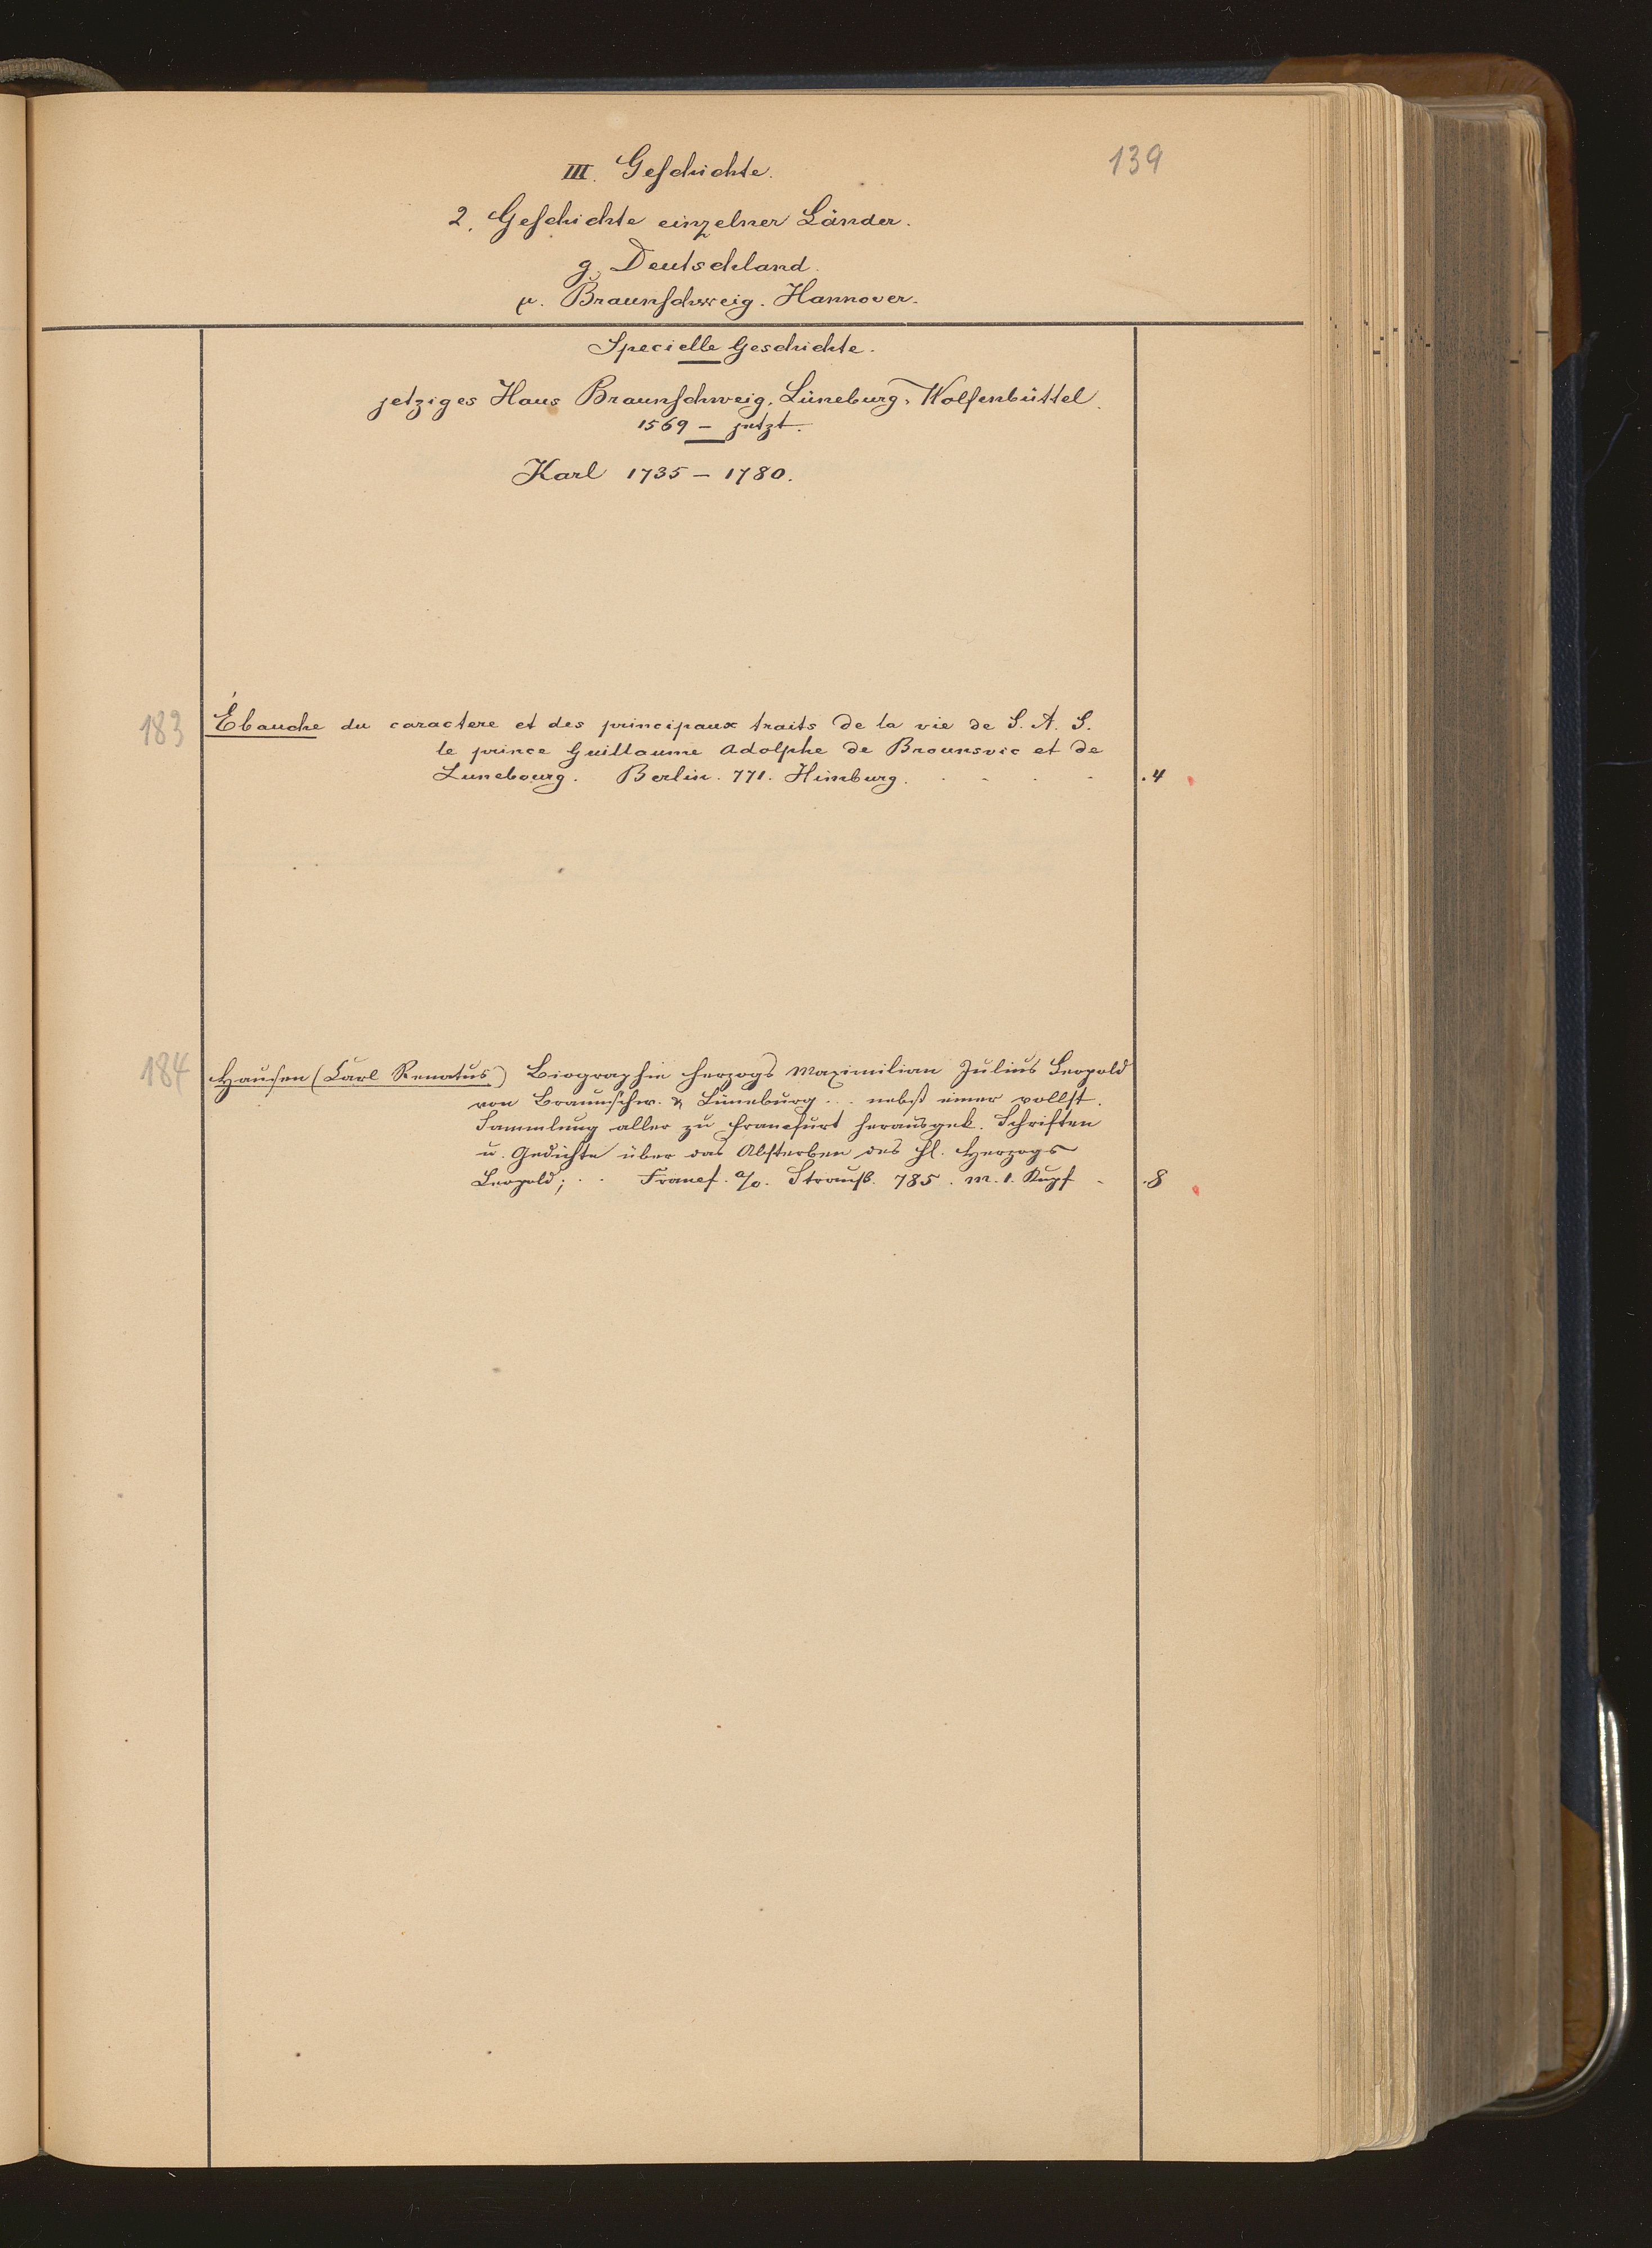 139
III. Geschichte.
2. Geschichte einzelner Länder.
g, Deutschland.
μ. Braunschweig. Hannover.
Specielle Geschichte.
jetziges Haus Braunschweig, Lüneburg, Wolfenbüttel.
1569 – jetzt.
Karl 1735 – 1780.
183 Ébauche du caractere et des principaux traits de la vie de S. A. S.
le prince Guillaume Adolphe de Brounsvic et de
Lunebourg. Berlin. 771. Himburg. .4
184 Hausen (Carl Renatus) Biographie Herzogs Maximilian Julius Leopold
von Braunschw. & Lüneburg... nebst einer vollst.
Sammlung aller zu Francfurt herausgek. Schriften
u. Gedichte über das Absterben des hl. Herzogs
Leopold; . . Francf. a/o. Strauß. 785. m. 1. Kupf. .8